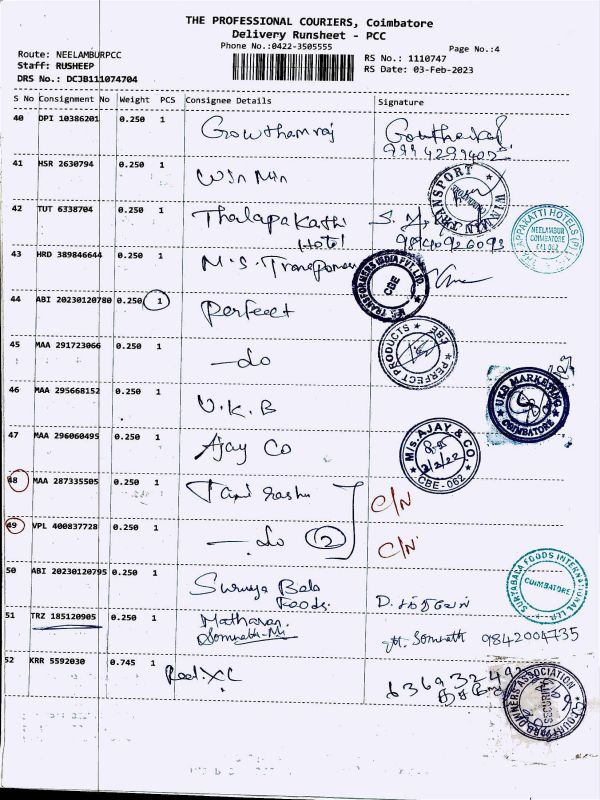 THE PROFESSIONAL COURIERS, Coimbatore
Delivery Runsheet - PCC
Phone No.:0422-3505555
Page No.:4
Route: NEELAMBURPCC
Staff: RUSHEEP
DRS No.: DCJB111074704
RS No.: 1110747
RS Date: 03-Feb-2023
S No Consignment No Weight PCS Consignee Details Signature
40 DPI 10386201 0.250 1 Gowthamraj
41 HSR 2630794 0.250 1 Win Win
WIN WIN TRANSPORT
42 TUT 6338704 0.250 1 Thalapakathi
Hotel
THALAPPAKATTI HOTELS (P) LTD
NEELAMBUR
COIMBATORE
641 062
43 HRD 389846644 0.250 1 M.S. Transformers
M.S. TRANSFORMERS INDIA PVT. LTD
CBE
44 ABI 20230120780 0.250 1 Perfect
45 MAA 291723066 0.250 1 —do
PERFECT PRODUCTS CBE
46 MAA 295668152 0.250 1 U.K.B
UKB MARKETING
COIMBATORE
47 MAA 296060495 0.250 1 Ajay Co
M/S. AJAY & CO.
CBE-062
48 MAA 287335505 0.250 1 C/N
49 VPL 400837728 0.250 1 —do 2 C/N
50 ABI 20230120795 0.250 1 Surya Bala
Foods.
D.
SURYABALA FOODS INTERNATIONAL LLP
COIMBATORE
51 TRZ 185120905 0.250 1 Matharan
Somnath
Somnath 9842004735
52 KRR 5592030 0.745 1
OWNERS ASSOCIATION